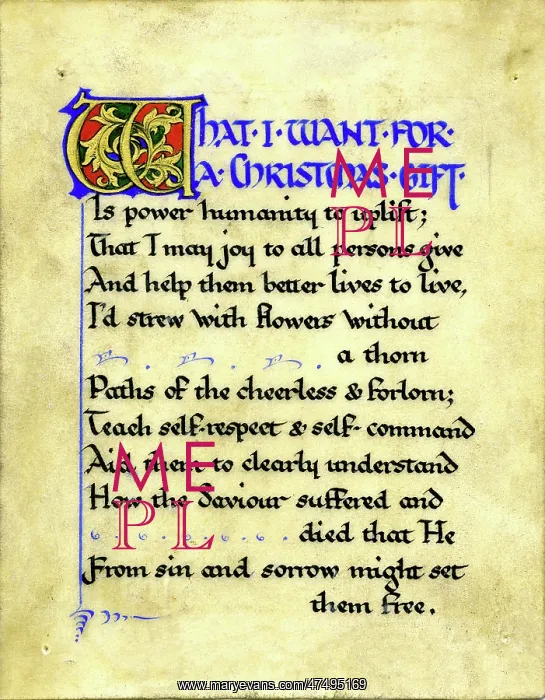 WHAT·I·WANT·FOR·
A·CHRISTMAS·GIFT·
Is power humanity to uplift;
That I may joy to all persons give
And help them better lives to live,
I'd strew with flowers without
a thorn
Paths of the cheerless & forlorn;
Teach self-respect & self-command
Aid them to clearly understand
How the Saviour suffered and
died that He
From sin and sorrow might set
them free.
ME
PL
ME
PL
www.maryevans.com/47495169